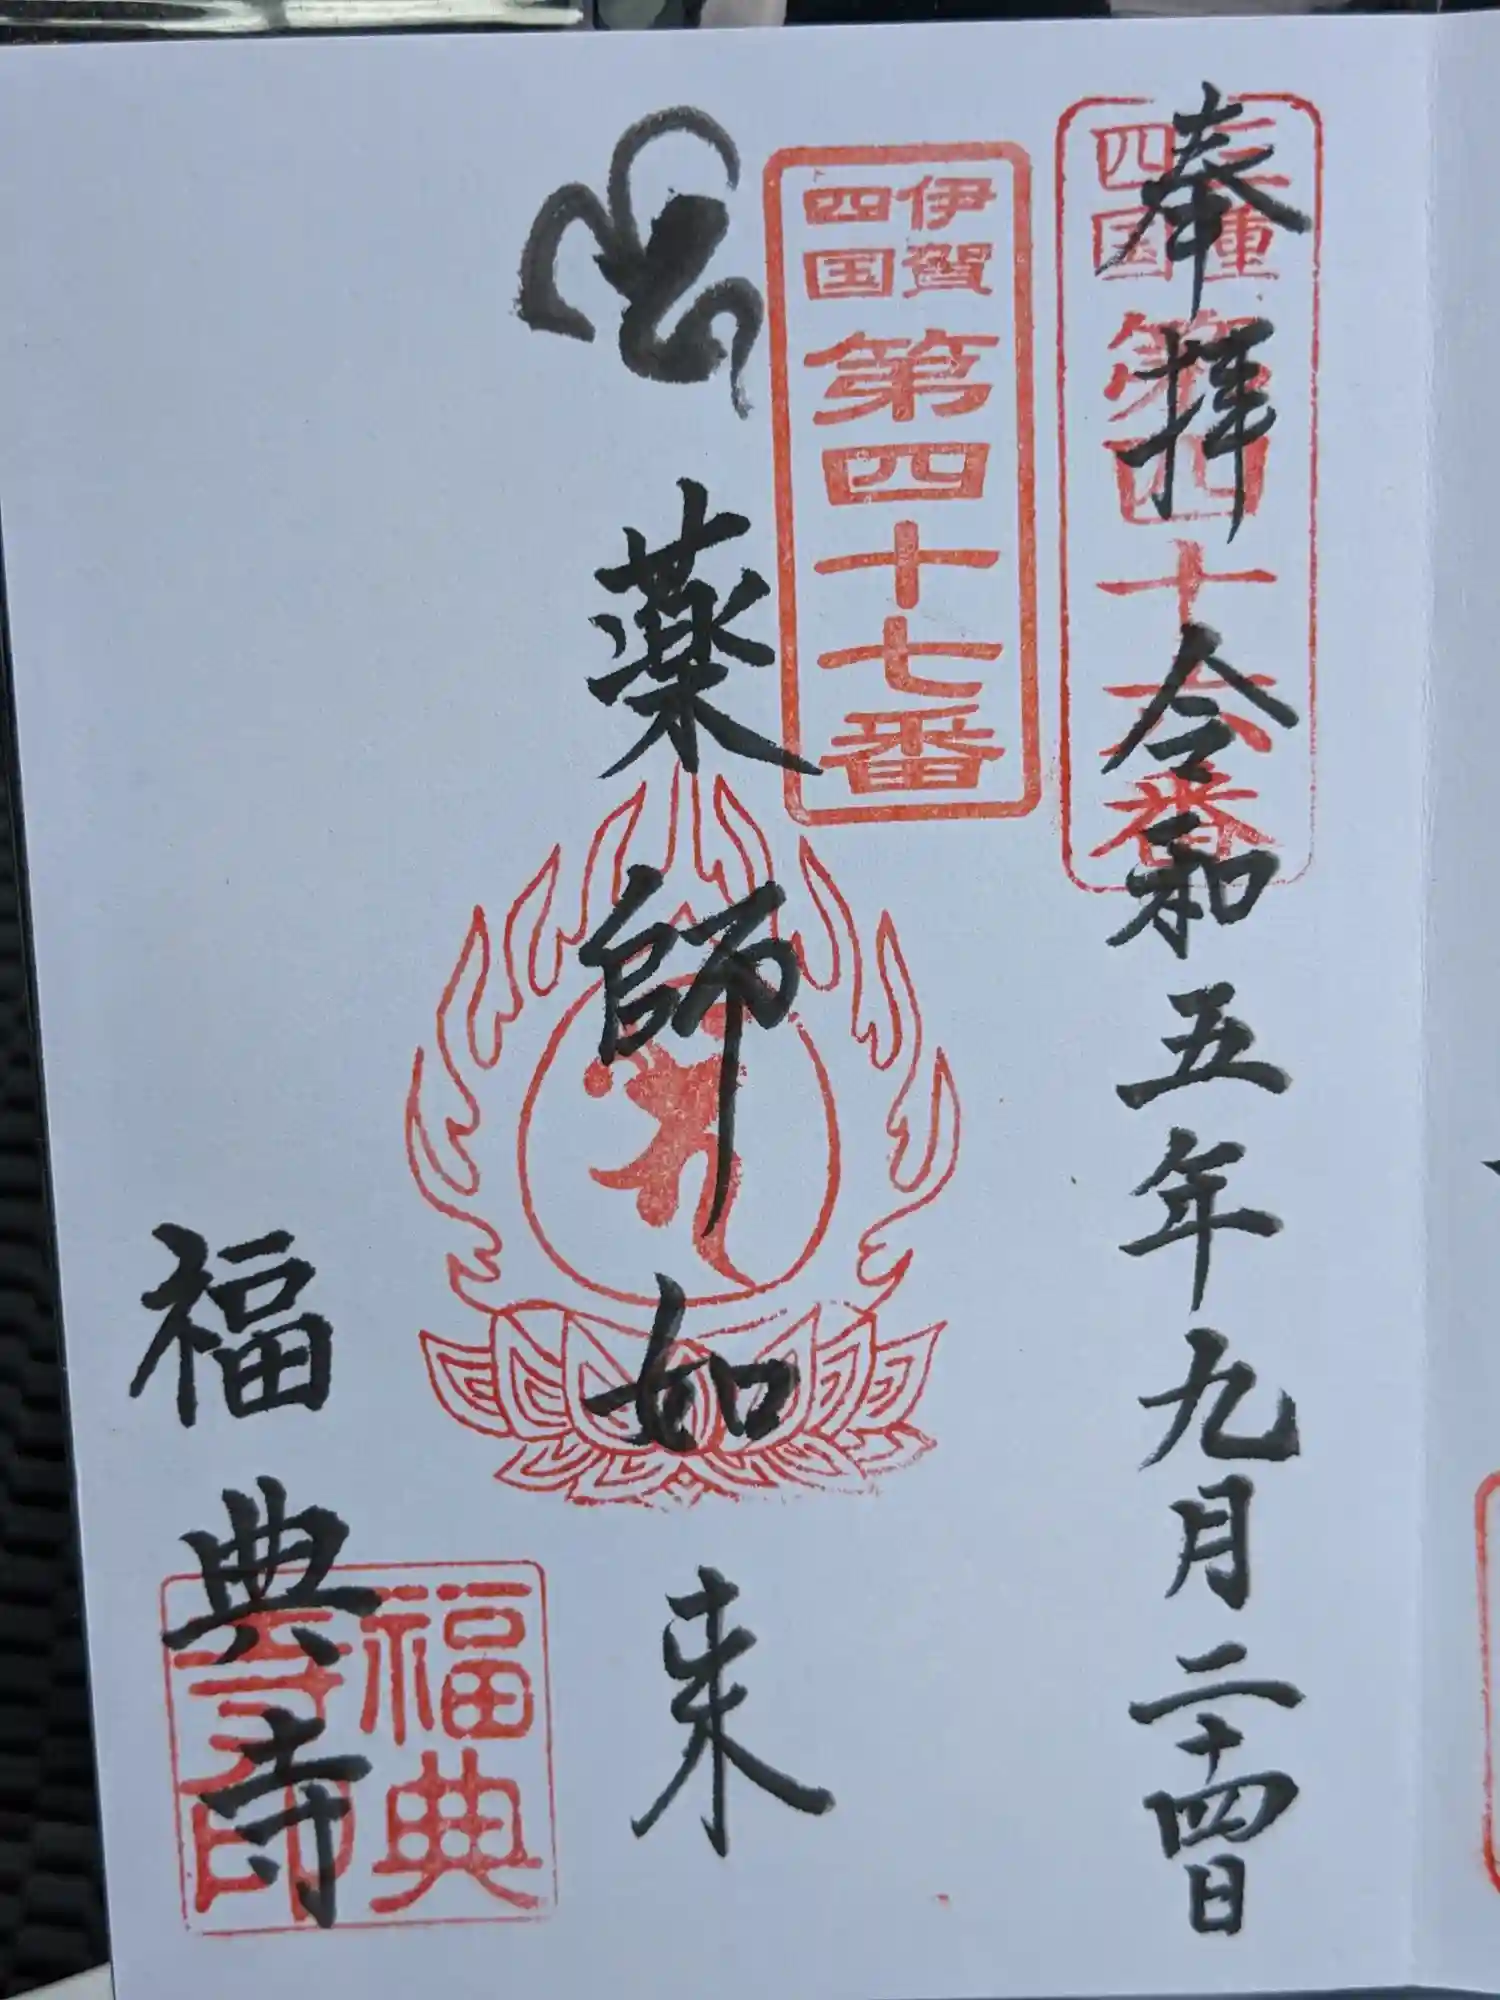 奉拝 令和五年九月二十四日
三重
四国
第四十六番
伊賀
四国
第四十七番
薬師如来
福典寺
福典
寺印